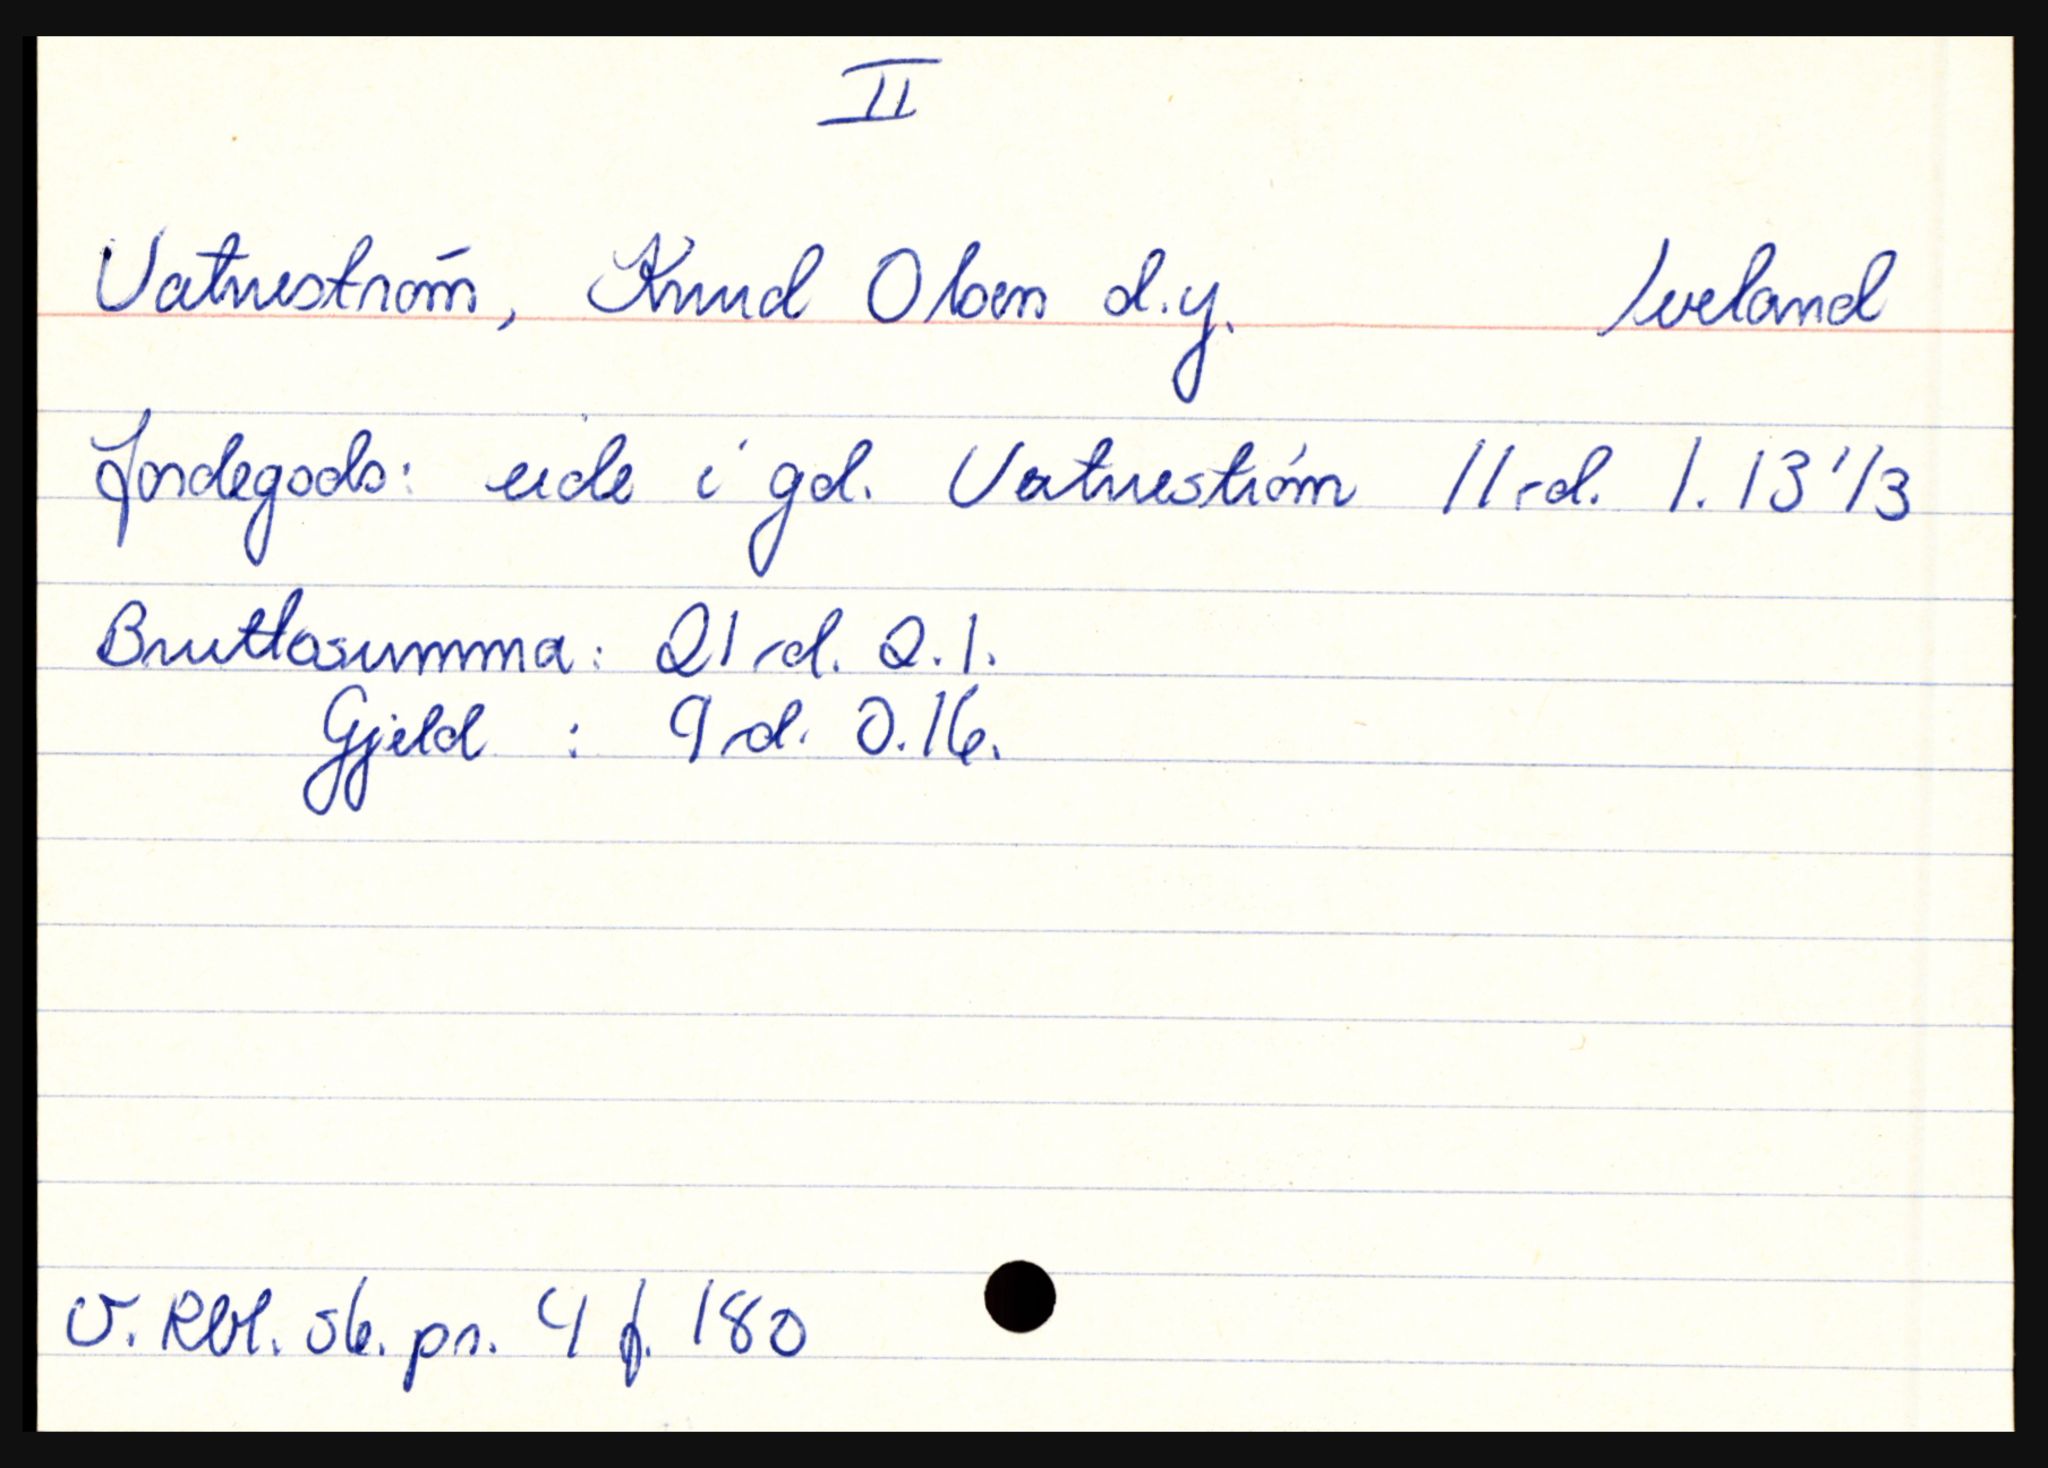 II
Vatneström, Knud Olsen d.y. Iveland
Jordegods: eide i gd. Vatneström 11 rd. 1. 13 1/3
Bruttosumma: 21 rd. 2.1.
Gjeld : 9 rd. 0.16.
V. Rbl. sk. pr. 4 f. 180